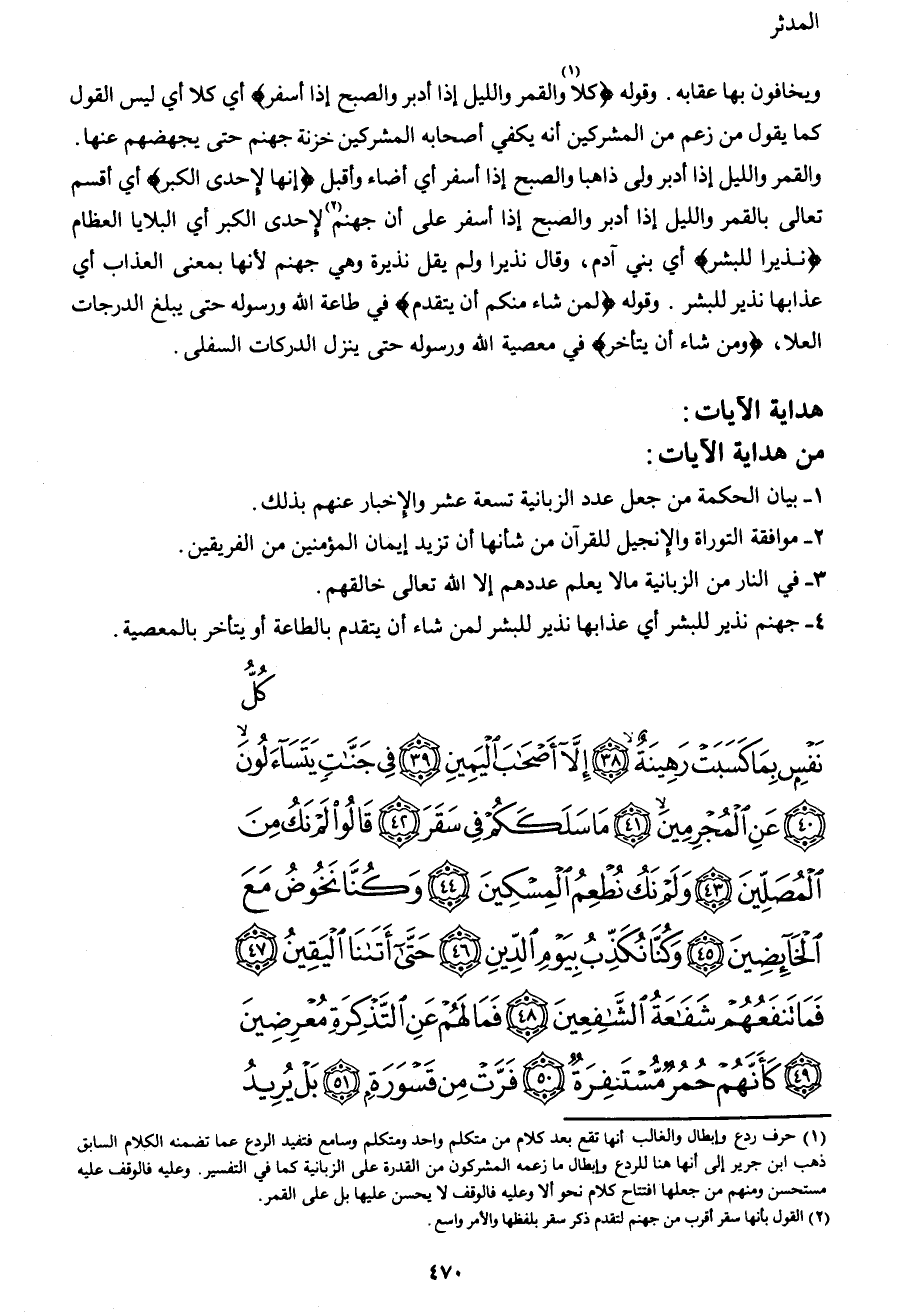 المدثر
ويخافون بها عقابه. وقوله ﴿كلا(١) والقمر والليل إذا أدبر والصبح إذا أسفر﴾ أي كلا أي ليس القول
كما يقول من زعم من المشركين أنه يكفي أصحابه المشركين خزنة جهنم حتى يجهضهم عنها.
والقمر والليل إذا أدبر ولى ذاهبا والصبح إذا أسفر أي أضاء وأقبل ﴿إنها لإحدى الكبر﴾ أي أقسم
تعالى بالقمر والليل إذا أدبر والصبح إذا أسفر على أن جهنم(٢) لإحدى الكبر أي البلايا العظام
﴿نـذيرا للبشر﴾ أي بني آدم، وقال نذيرا ولم يقل نذيرة وهي جهنم لأنها بمعنى العذاب أي
عذابها نذير للبشر. وقوله ﴿لمن شاء منكم أن يتقدم﴾ في طاعة الله ورسوله حتى يبلغ الدرجات
العلا، ﴿ومن شاء أن يتأخر﴾ في معصية الله ورسوله حتى ينزل الدركات السفلى.
هداية الآيات:
من هداية الآيات:
١- بيان الحكمة من جعل عدد الزبانية تسعة عشر والإخبار عنهم بذلك.
٢- موافقة التوراة والإنجيل للقرآن من شأنها أن تزيد إيمان المؤمنين من الفريقين.
٣- في النار من الزبانية مالا يعلم عددهم إلا الله تعالى خالقهم.
٤- جهنم نذير للبشر أي عذابها نذير للبشر لمن شاء أن يتقدم بالطاعة أو يتأخر بالمعصية.
كُلُّ
نَفْسٍ بِمَا كَسَبَتْ رَهِينَةٌ ٣٨ إِلَّآ أَصْحَٰبَ ٱلْيَمِينِ ٣٩ فِى جَنَّٰتٍ يَتَسَآءَلُونَ
٤٠ عَنِ ٱلْمُجْرِمِينَ ٤١ مَا سَلَكَكُمْ فِى سَقَرَ ٤٢ قَالُوا۟ لَمْ نَكُ مِنَ
ٱلْمُصَلِّينَ ٤٣ وَلَمْ نَكُ نُطْعِمُ ٱلْمِسْكِينَ ٤٤ وَكُنَّا نَخُوضُ مَعَ
ٱلْخَآئِضِينَ ٤٥ وَكُنَّا نُكَذِّبُ بِيَوْمِ ٱلدِّينِ ٤٦ حَتَّىٰٓ أَتَىٰنَا ٱلْيَقِينُ ٤٧
فَمَا تَنفَعُهُمْ شَفَٰعَةُ ٱلشَّٰفِعِينَ ٤٨ فَمَا لَهُمْ عَنِ ٱلتَّذْكِرَةِ مُعْرِضِينَ
٤٩ كَأَنَّهُمْ حُمُرٌ مُّسْتَنفِرَةٌ ٥٠ فَرَّتْ مِن قَسْوَرَةٍۭ ٥١ بَلْ يُرِيدُ
(١) حرف ردع وإبطال والغالب أنها تقع بعد كلام من متكلم واحد ومتكلم وسامع فتفيد الردع عما تضمنه الكلام السابق
ذهب ابن جرير إلى أنها هنا للردع وإبطال ما زعمه المشركون من القدرة على الزبانية كما في التفسير. وعليه فالوقف عليه
مستحسن ومنهم من جعلها افتتاح كلام نحو ألا وعليه فالوقف لا يحسن عليها بل على القمر.
(٢) القول بأنها سقر أقرب من جهنم لتقدم ذكر سقر بلفظها والأمر واسع.
٤٧٠